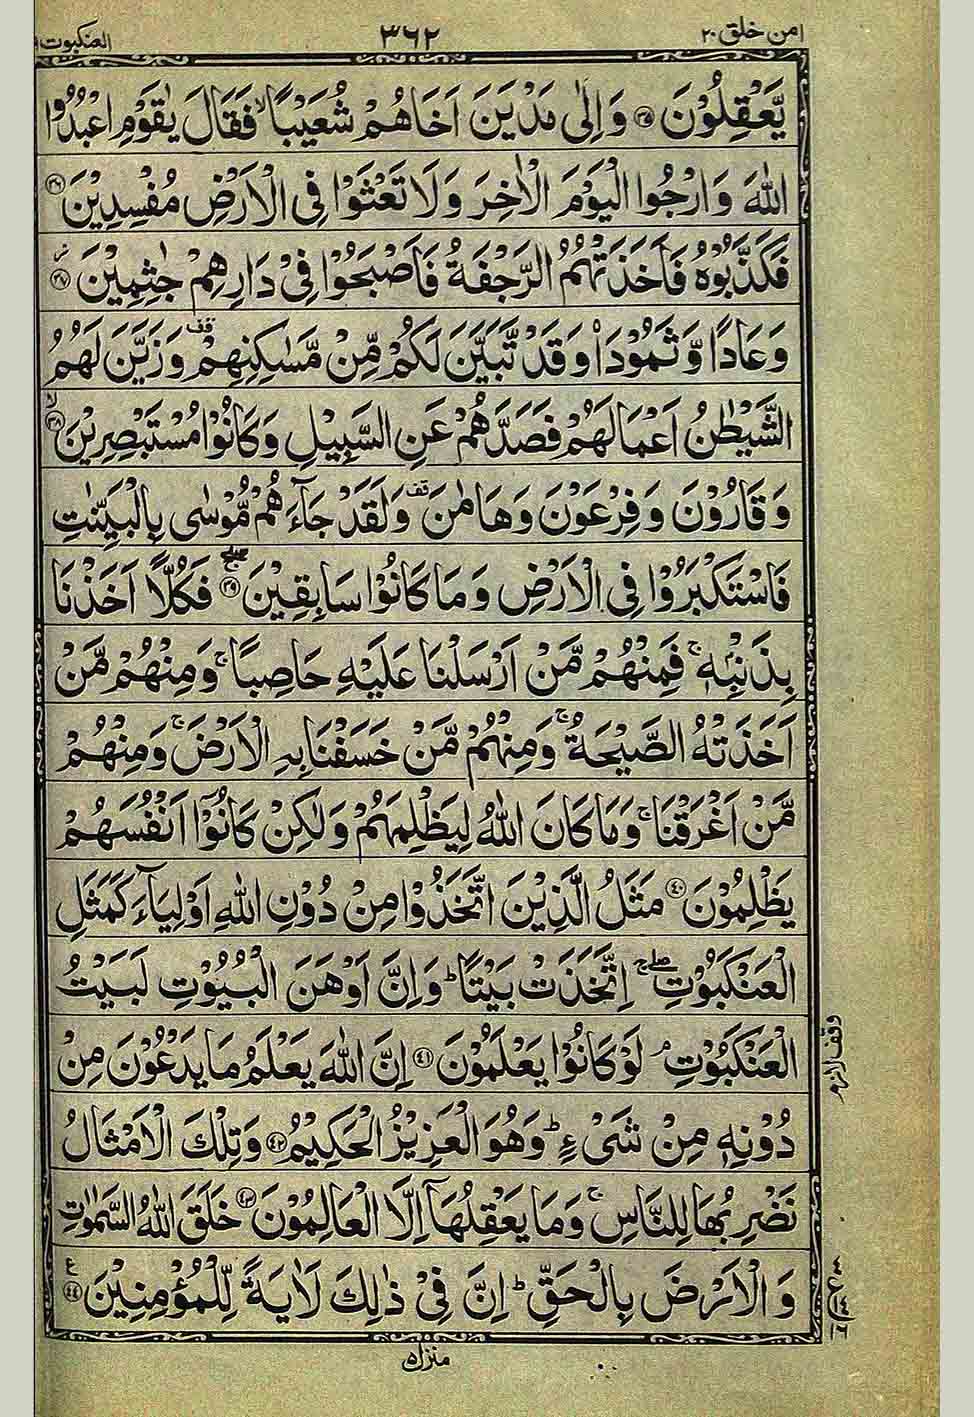 امن خلق ٢٠ ٣٦٢ العنكبوت
يَّعْقِلُوْنَ ۝٣٥ وَاِلٰى مَدْيَنَ اَخَاهُمْ شُعَيْبًا ۙ فَقَالَ يٰقَوْمِ اعْبُدُوا
اللّٰهَ وَارْجُوا الْيَوْمَ الْاٰخِرَ وَلَا تَعْثَوْا فِى الْاَرْضِ مُفْسِدِيْنَ ۝٣٦
فَكَذَّبُوْهُ فَاَخَذَتْهُمُ الرَّجْفَةُ فَاَصْبَحُوْا فِىْ دَارِهِمْ جٰثِمِيْنَ ۝٣٧
وَعَادًا وَّثَمُوْدَا۟ وَقَدْ تَّبَيَّنَ لَكُمْ مِّنْ مَّسٰكِنِهِمْ قف وَزَيَّنَ لَهُمُ
الشَّيْطٰنُ اَعْمَالَهُمْ فَصَدَّهُمْ عَنِ السَّبِيْلِ وَكَانُوْا مُسْتَبْصِرِيْنَ ۙ۝٣٨
وَقَارُوْنَ وَفِرْعَوْنَ وَهَامٰنَ قف وَلَقَدْ جَآءَهُمْ مُّوْسٰى بِالْبَيِّنٰتِ
فَاسْتَكْبَرُوْا فِى الْاَرْضِ وَمَا كَانُوْا سَابِقِيْنَ ۝٣٩ فَكُلًّا اَخَذْنَا
بِذَنْۢبِهٖ ۚ فَمِنْهُمْ مَّنْ اَرْسَلْنَا عَلَيْهِ حَاصِبًا ۚ وَمِنْهُمْ مَّنْ
اَخَذَتْهُ الصَّيْحَةُ ۚ وَمِنْهُمْ مَّنْ خَسَفْنَا بِهِ الْاَرْضَ ۚ وَمِنْهُمْ
مَّنْ اَغْرَقْنَا ۚ وَمَا كَانَ اللّٰهُ لِيَظْلِمَهُمْ وَلٰكِنْ كَانُوْٓا اَنْفُسَهُمْ
يَظْلِمُوْنَ ۝٤٠ مَثَلُ الَّذِيْنَ اتَّخَذُوْا مِنْ دُوْنِ اللّٰهِ اَوْلِيَآءَ كَمَثَلِ
الْعَنْكَبُوْتِ ۖۚ اِتَّخَذَتْ بَيْتًا ؕ وَاِنَّ اَوْهَنَ الْبُيُوْتِ لَبَيْتُ
الْعَنْكَبُوْتِ ۘ لَوْ كَانُوْا يَعْلَمُوْنَ ۝٤١ اِنَّ اللّٰهَ يَعْلَمُ مَا يَدْعُوْنَ مِنْ
دُوْنِهٖ مِنْ شَىْءٍ ؕ وَهُوَ الْعَزِيْزُ الْحَكِيْمُ ۝٤٢ وَتِلْكَ الْاَمْثَالُ
نَضْرِبُهَا لِلنَّاسِ ۚ وَمَا يَعْقِلُهَآ اِلَّا الْعَالِمُوْنَ ۝٤٣ خَلَقَ اللّٰهُ السَّمٰوٰتِ
وَالْاَرْضَ بِالْحَقِّ ؕ اِنَّ فِىْ ذٰلِكَ لَاٰيَةً لِّلْمُؤْمِنِيْنَ ۝٤٤ ع
وقف لازم
منزل ٥